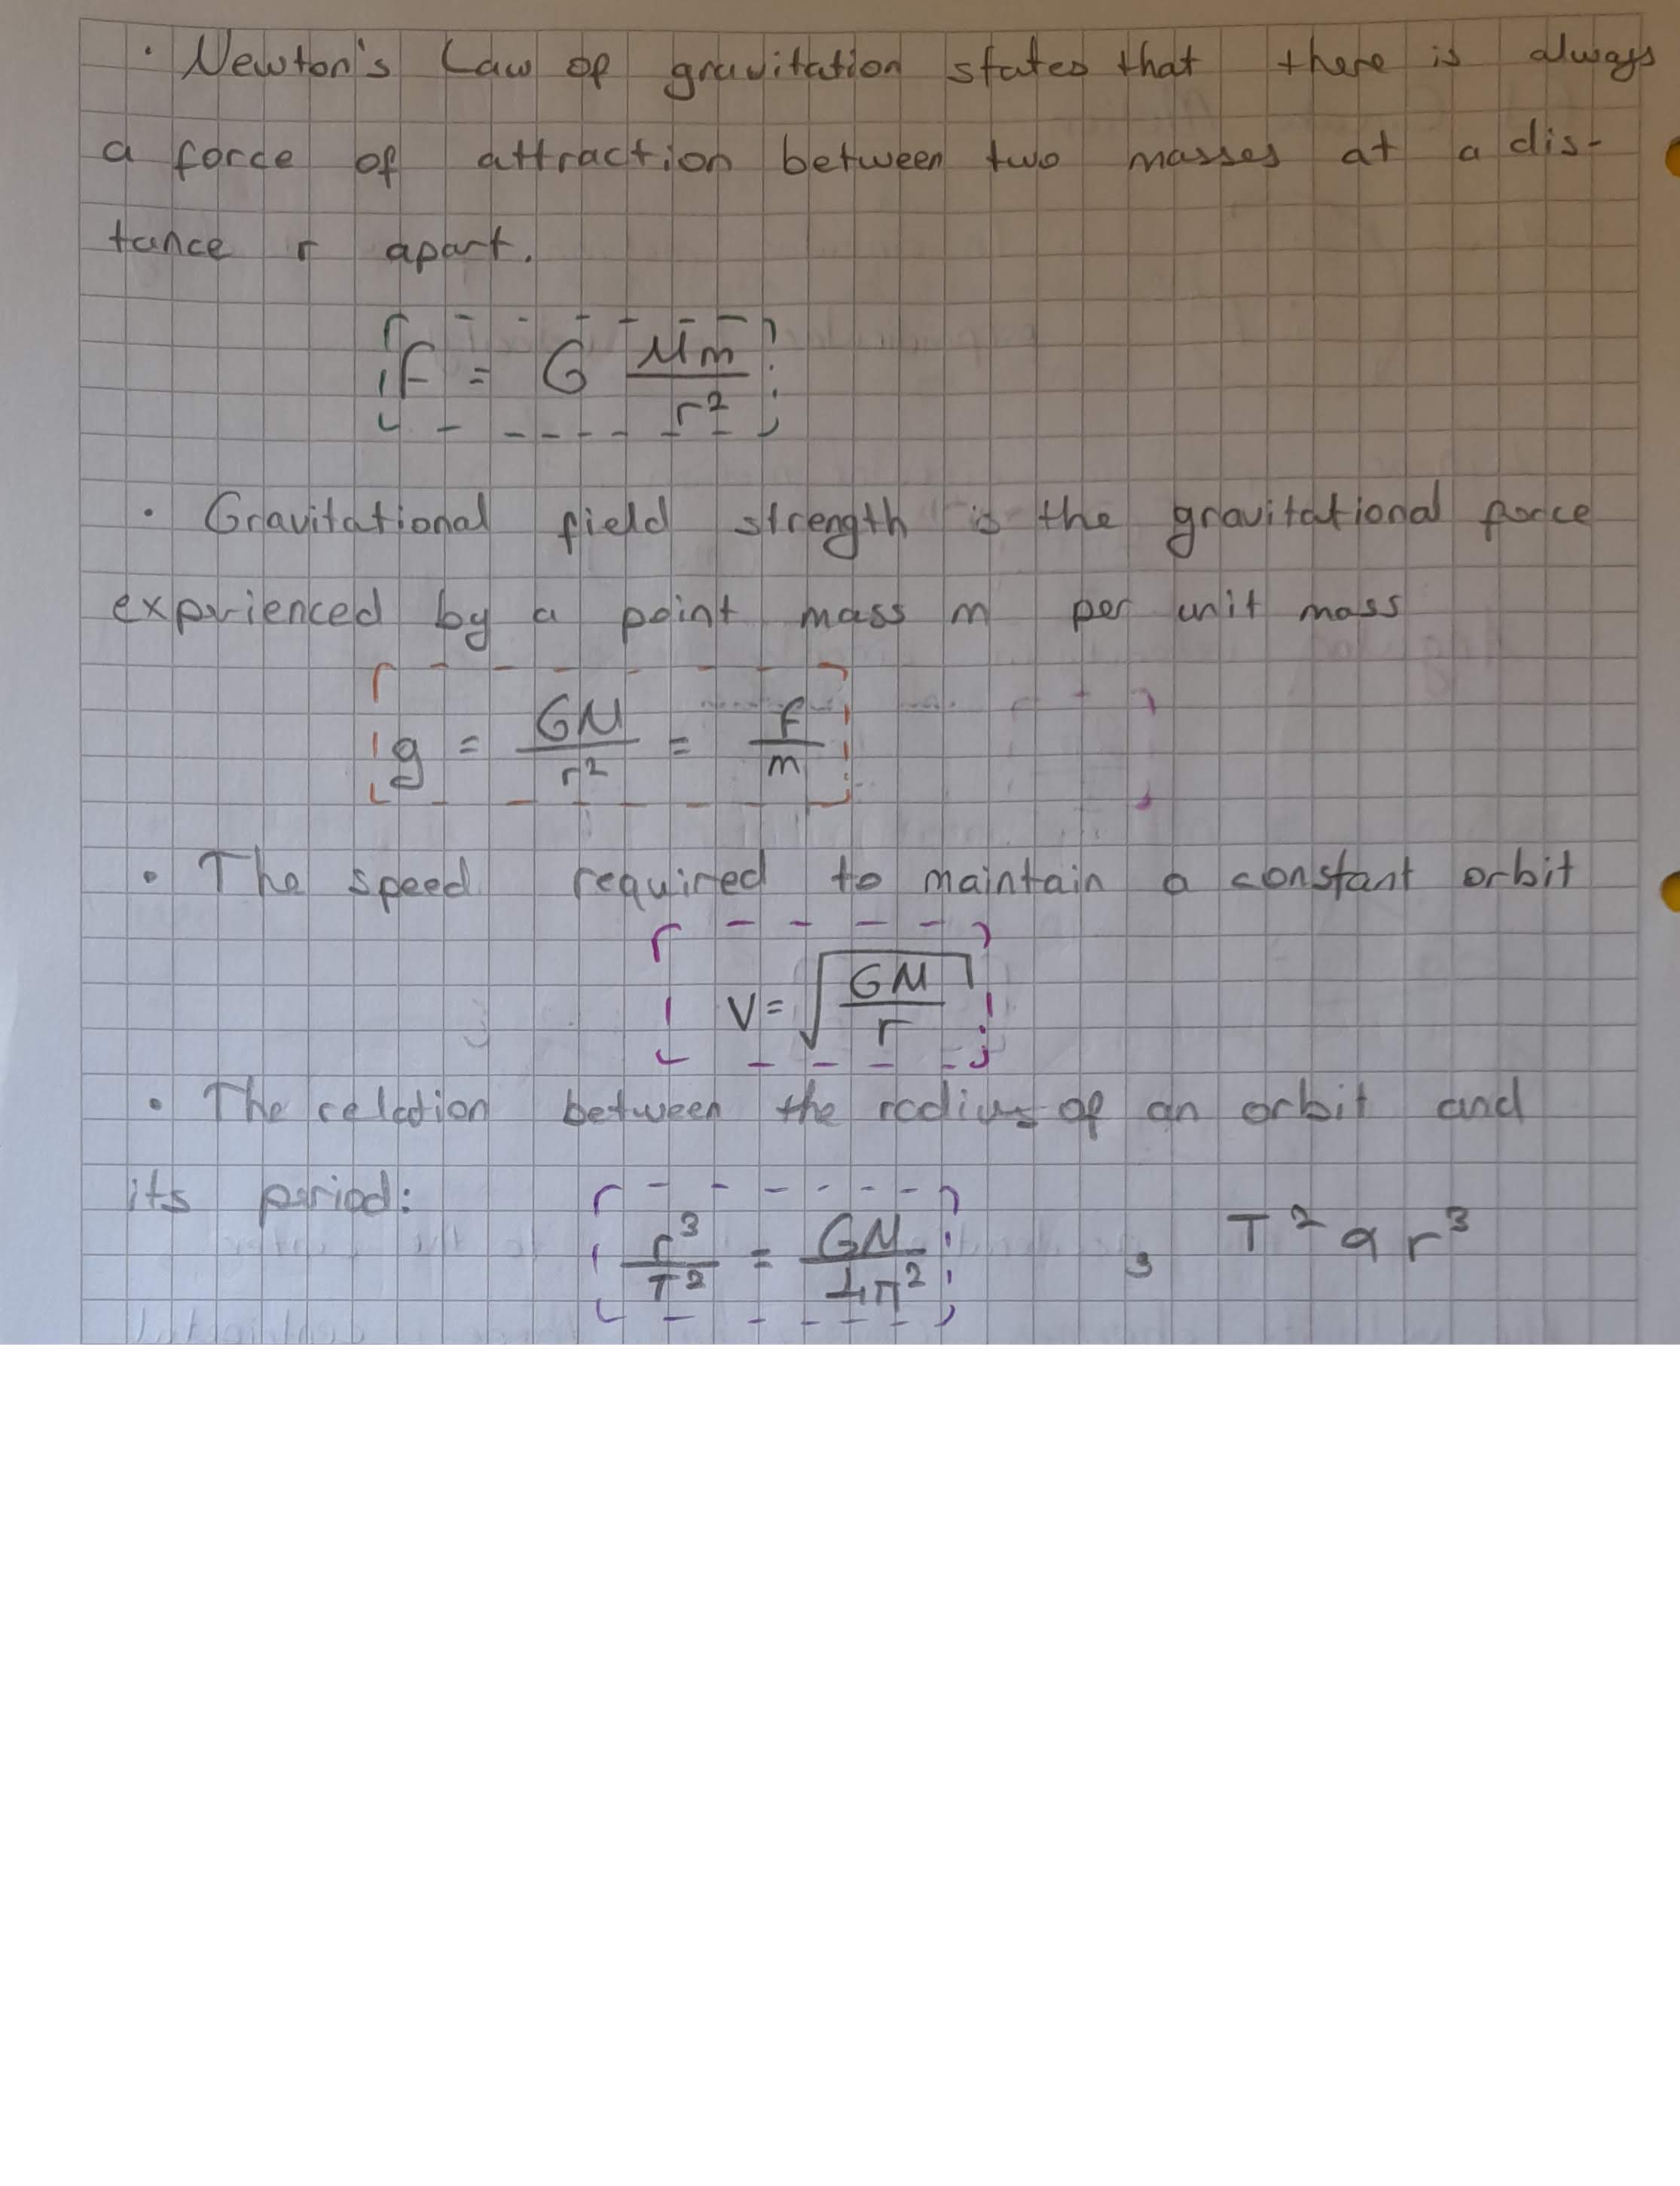 · Newton's Law of gravitation states that there is always
a force of attraction between two masses at a dis-
tance r apart.
F = G Mm/r²
· Gravitational field strength is the gravitational force
exprienced by a point mass m per unit mass
g = GM/r² = F/m
• The speed required to maintain a constant orbit
V = √(GM/r)
• The relation between the radius of an orbit and
its period:
r³/T² = GM/4π² , T² α r³